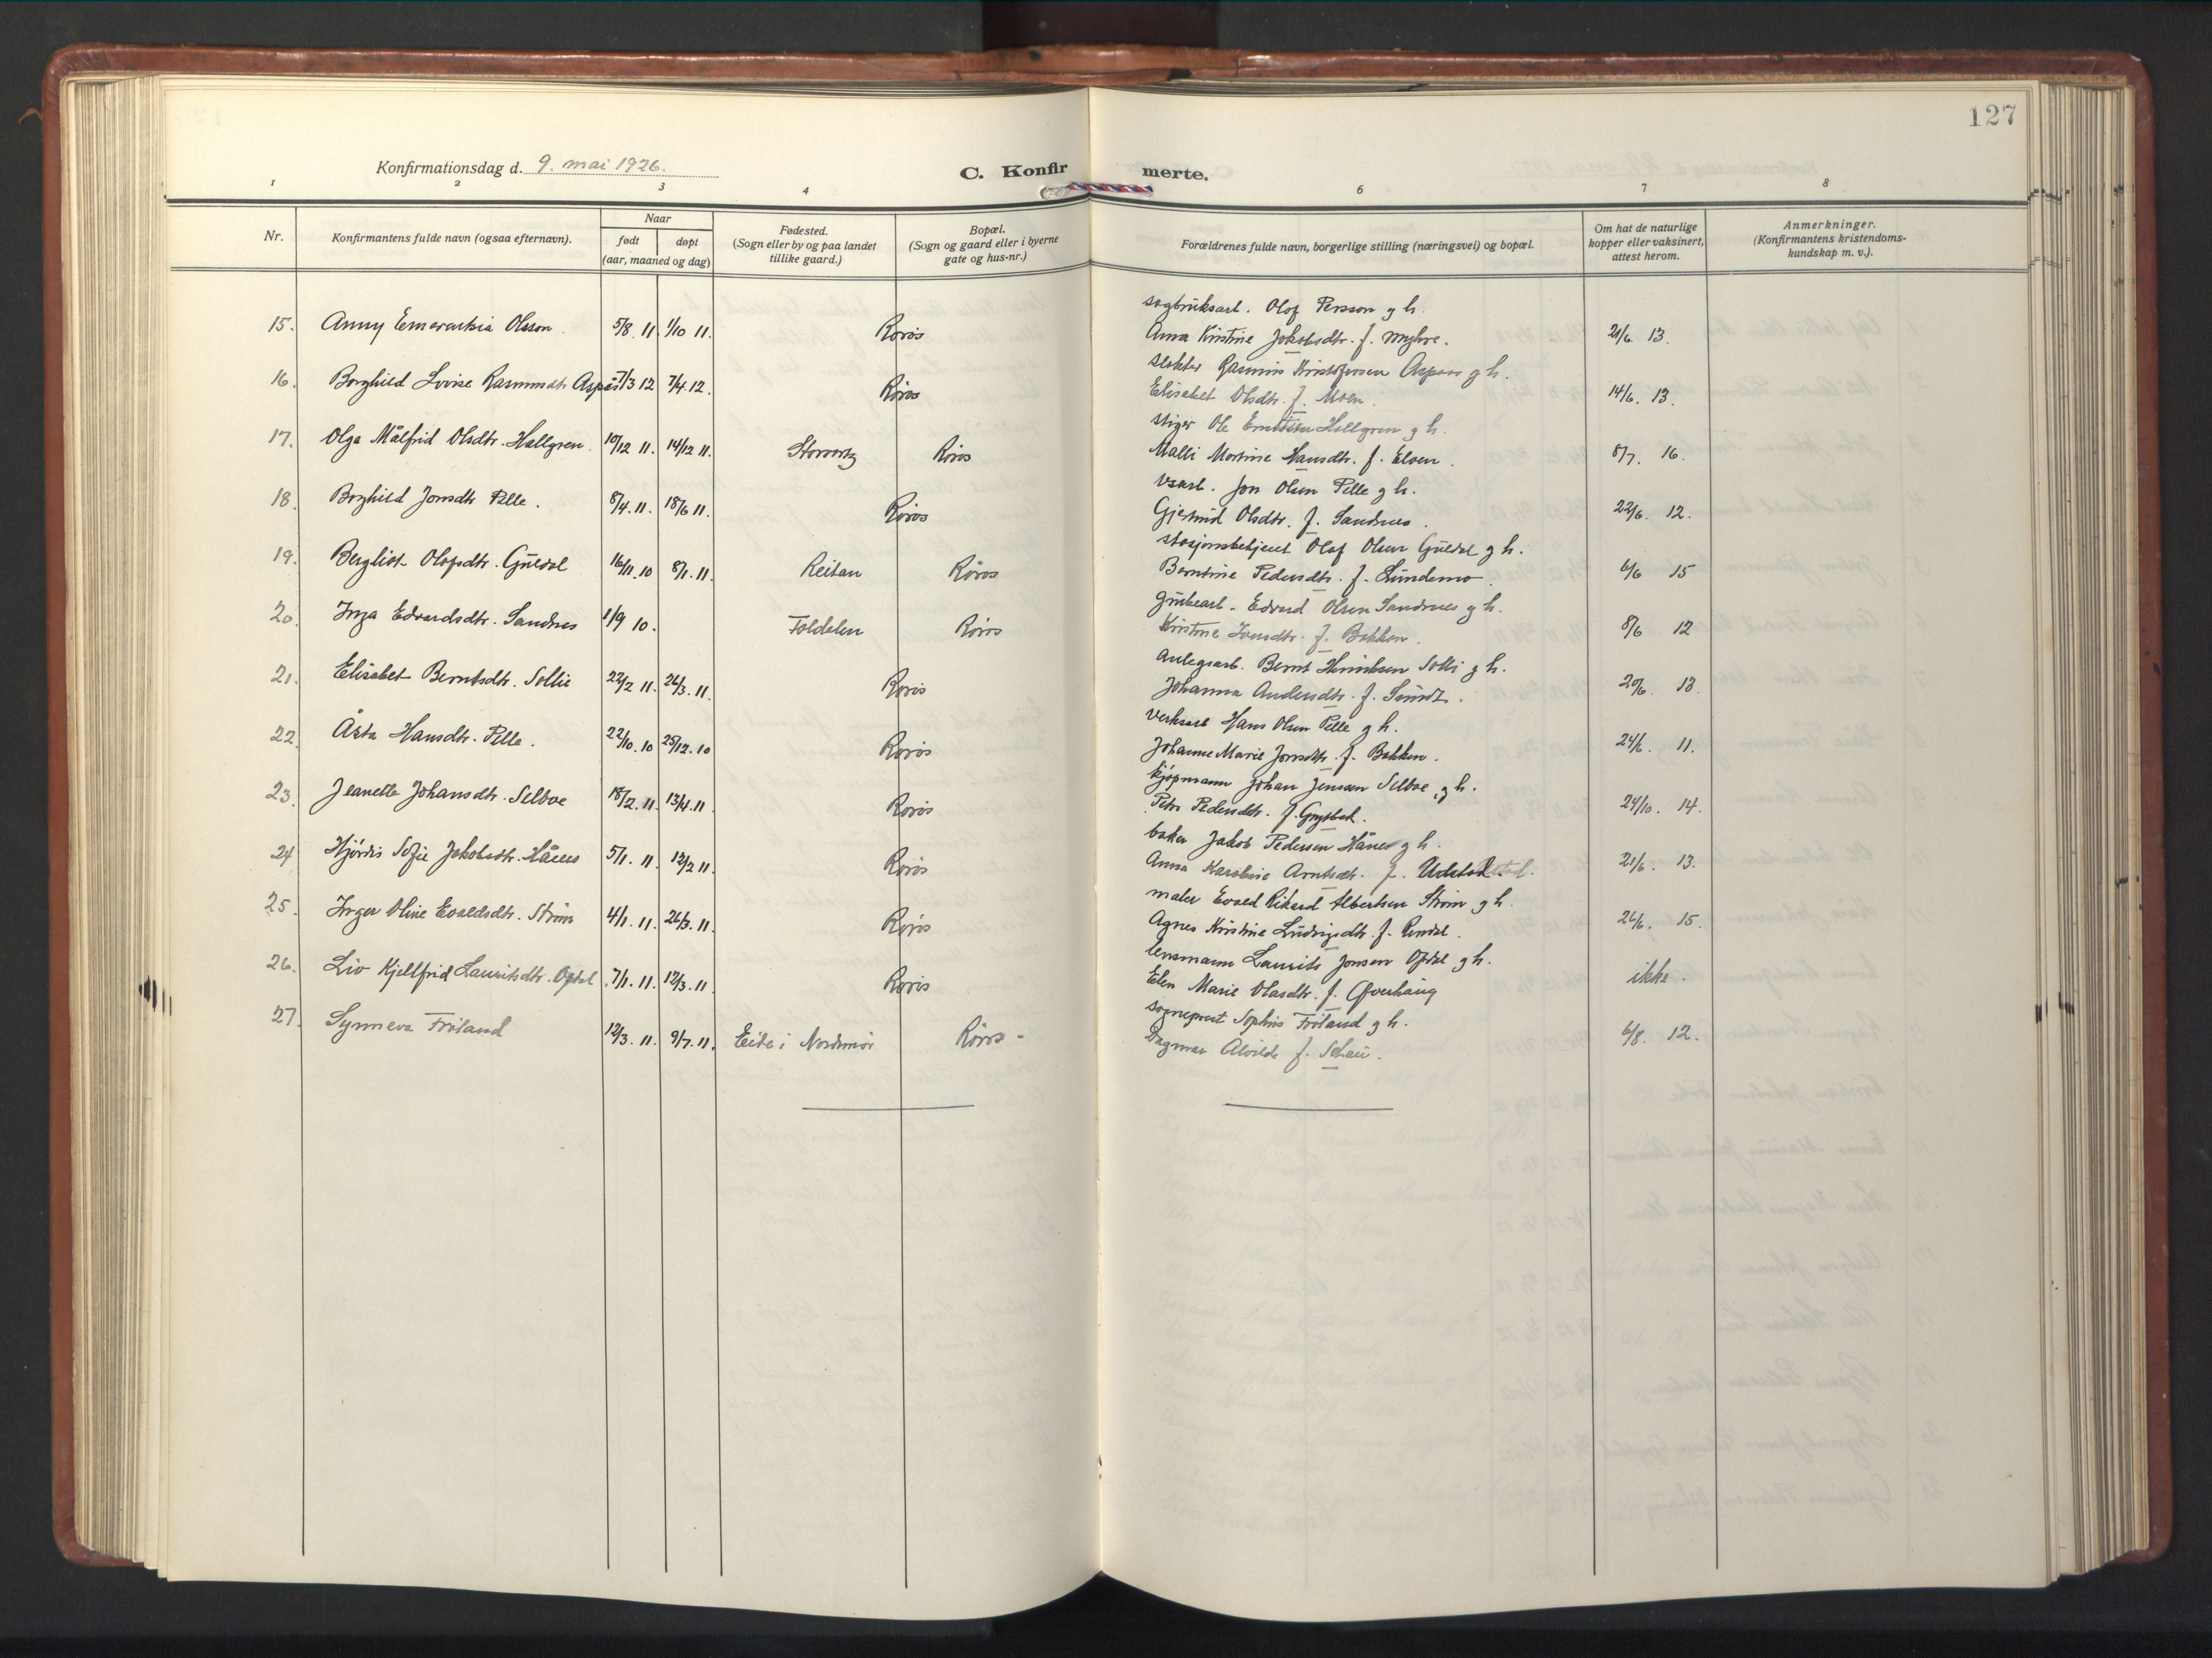 127
Konfirmationsdag d. 9. mai 1926.
C. Konfirmerte.
1 2 3 4 6 7 8
Nr.
Konfirmantens fulde navn (ogsaa efternavn).
Naar
født døpt
(aar, maaned og dag)
Fødested.
(Sogn eller by og paa landet
tillike gaard.)
Bopæl.
(Sogn og gaard eller i byerne
gate og hus-nr.)
Forældrenes fulde navn, borgerlige stilling (næringsvei) og bopæl.
Om hat de naturlige
kopper eller vaksinert,
attest herom.
Anmerkninger.
(Konfirmantens kristendoms-
kundskap m. v.).
sagbruksarb. Olof Persson g h.
15. Anny Olsson. 5/8. 11. 1/10 11. Røros
Anna Kristine Jakobsdtr. f. Myhre. 21/6. 13.
slakter Rasmus Kristofersen Aspaas g h.
16. Borghild Lovise Rasmusdtr Aspås 7/3 12 7/4 12. Røros
Elisabet Olsdtr. f. Moen. 14/6. 13.
stiger Ole Hallgren g h.
17. Olga Målfrid Olsdtr. Hallgren. 10/12 11. 14/12 11. Storvartz Røros
Malli Martine Hansdtr. f. Elven. 8/7. 16.
Vsarb. Jon Olsen Pelle g h.
18. Borghild Jonsdtr Pelle. 8/4. 11. 18/6 11. Røros
Gjertrud Olsdtr. f. Sandnes. 22/6. 12.
stasjonsbetjent Olaf Olsen Guldal g h.
19. Bergliot Olafsdtr. Guldal 16/11. 10 8/1. 11. Reitan Røros
Berntine Pedersdtr. f. Lundemo. 6/6 15
grubearb. Edvard Olsen Sandnes g h.
20. Inga Edvardsdtr. Sandnes 1/9 10. Foldalen Røros
Kristine Jonsdtr. f. Bakken. 8/6 12
Anlegsarb. Bernt Henriksen Solli g h.
21. Elisabet Berntsdtr. Sollie 22/2 11. 26/3. 11. Røros
Johanna Andersdtr. f. Sundt. 20/6. 13.
Verksarb Hans Olsen Pelle g h.
22. Åsta Hansdtr. Pelle. 22/10. 10 25/12. 10 Røros
Johanne Marie Jonsdtr. f. Bakken. 24/6. 11.
kjøpmann Johan Jensen Selboe, g h.
23. Jeanette Johansdtr. Selboe 18/2. 11. 13/4. 11 Røros
Petra Pedersdtr. f. 24/10. 14.
baker Jakob Pedersen Hånes g h.
24 Hjørdis Sofie Jakobsdtr. Hånes 5/1. 11. 12/2 11. Røros
Anna Karoline Arntsdtr. f. 21/6. 13.
maler Evald Rikard Albertsen Strøm g h.
25. Inger Oline Evaldsdtr. Strøm 4/1. 11. 26/3. 11. Røros
Agnes Kristine Ludvigsdtr. f. Rendal. 26/6. 15.
lensmann Laurits Jonsen Opdal g h.
26. Liv Kjellfrid Lauritsdtr. Opdal 7/1. 11. 12/3. 11. Røros
Elen Marie Olasdtr. f. ikke.
sogneprest Sophus Frøland g h.
27. Synneva Frøland 12/3. 11. 9/7. 11. Eide i Nordmør Røros -
Dagmar Alvilde f. Schau. 6/8. 12.